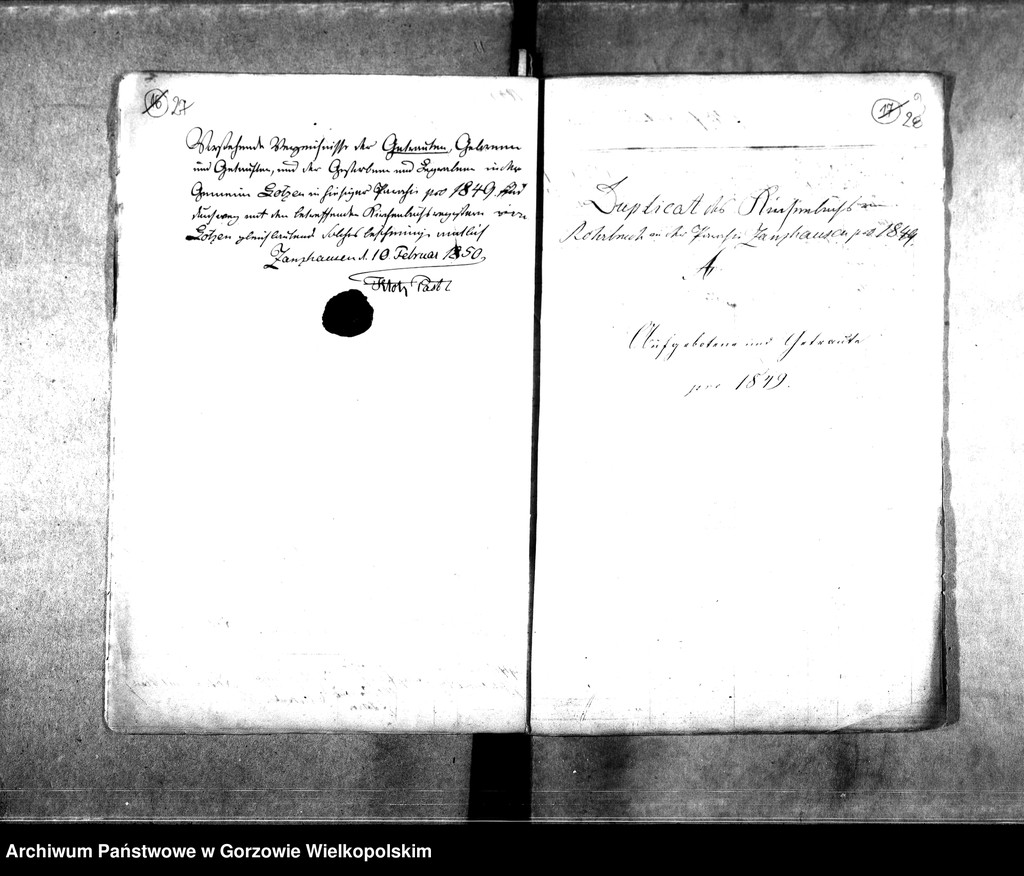 16 27
Vorstehende Verzeichnisse der Getrauten, Geborenen
und Getauften, und der Gestorbenen und Begrabenen in der
Gemeinde Lotzen in hiesiger Parochie pro 1849 sind
durchweg mit den betreffenden Kirchenbuchsregistern von
Lotzen gleichlautend solches bescheinigt amtlich
Zanzhausen d. 10 Februar 1850.
Past
17 28
Duplicat des Kirchenbuchs von
Rohrbruch in der Parochie Zanzhausen pro 1849.
A
Aufgebotene und Getraute
pro 1849.
Archiwum Państwowe w Gorzowie Wielkopolskim